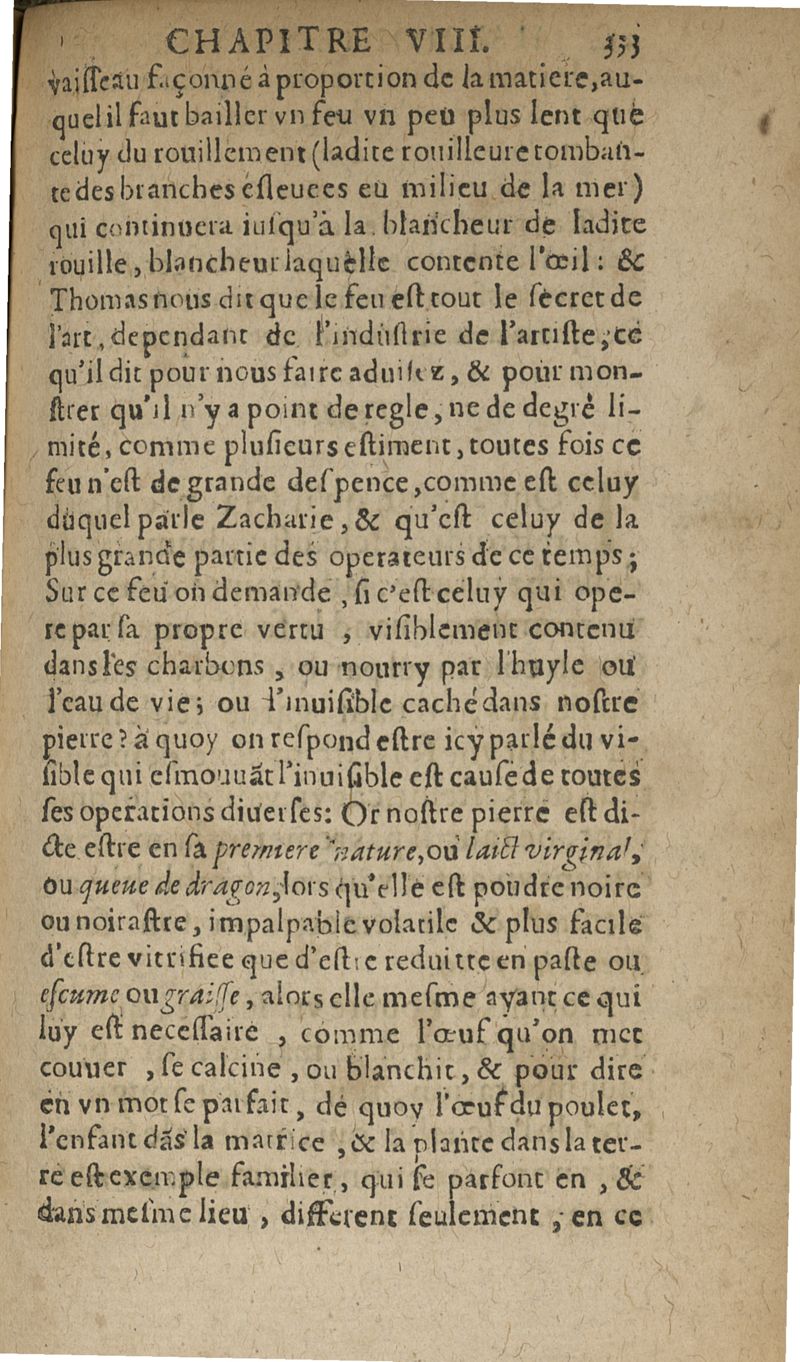 CHAPITRE VIII. 333
vaiſſeau façonné à proportion de la matiere, au-
quel il faut bailler vn feu vn peu plus lent que
celuy du rouillement (ladite rouilleure tomban-
te des branches eſleuees eu milieu de la mer)
qui continuera iuſqu'à la blancheur de ladite
rouille, blancheur laquelle contente l'œil : &
Thomas nous dit que le feu eſt tout le ſecret de
l'art, dependant de l'induſtrie de l'artiſte, ce
qu'il dit pour nous faire aduiſez, & pour mon-
ſtrer qu'il n'y a point de regle, ne de degré li-
mité, comme pluſieurs eſtiment, toutes fois ce
feu n'eſt de grande deſpence, comme eſt celuy
duquel parle Zacharie, & qu'eſt celuy de la
plus grande partie des operateurs de ce temps ;
Sur ce feu on demande, ſi c'eſt celuy qui ope-
re par ſa propre vertu , viſiblement contenu
dans les charbons , ou nourry par l'huyle ou
l'eau de vie ; ou l'inuiſible caché dans noſtre
pierre ? à quoy on reſpond eſtre icy parlé du vi-
ſible qui eſmouuãt l'inuiſible eſt cauſe de toutes
ſes operations diuerſes : Or noſtre pierre eſt di-
cte eſtre en ſa premiere nature, ou laict virginal,
ou queue de dragon, lors qu'elle eſt poudre noire
ou noiraſtre, impalpable volatile & plus facile
d'eſtre vitrifiee que d'eſtre reduitte en paſte ou
eſcume ou graiſſe, alors elle meſme ayant ce qui
luy eſt neceſſaire , comme l'œuf qu'on met
couuer , ſe calcine , ou blanchit, & pour dire
en vn mot ſe parfait, de quoy l'œuf du poulet,
l'enfant dãs la matrice , & la plante dans la ter-
re eſt exemple familier, qui ſe parfont en , &
dans meſme lieu , different ſeulement , en ce